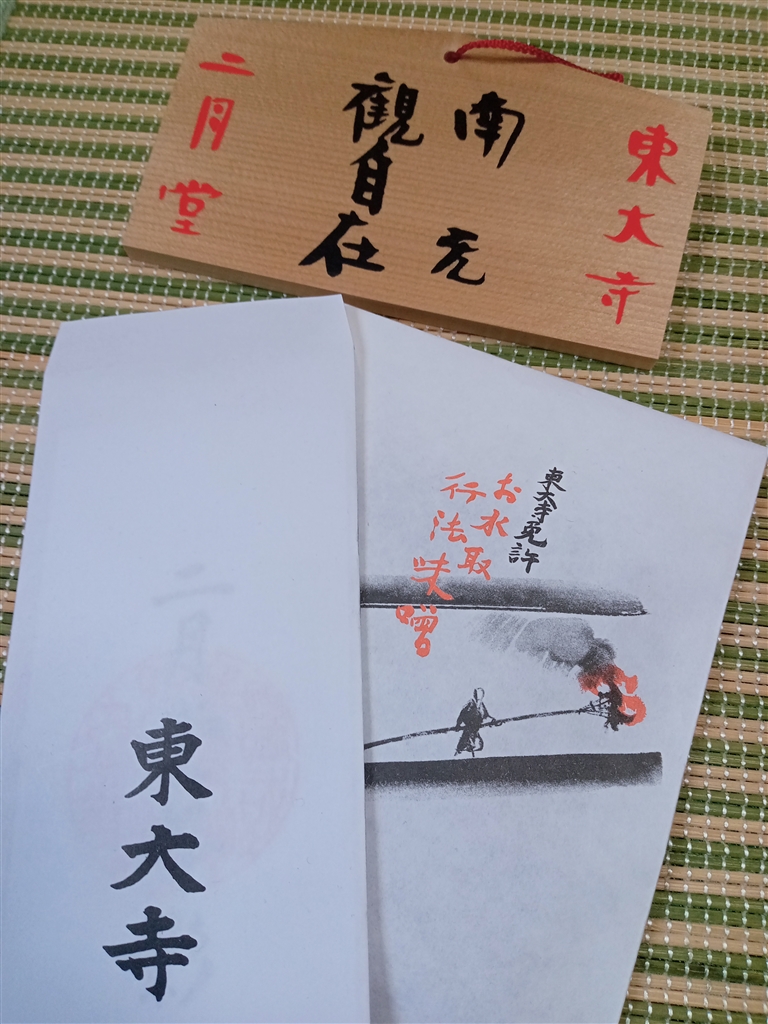 東大寺
南无
觀自在
二月堂
東大寺免許
お水取
行法味噌
東大寺